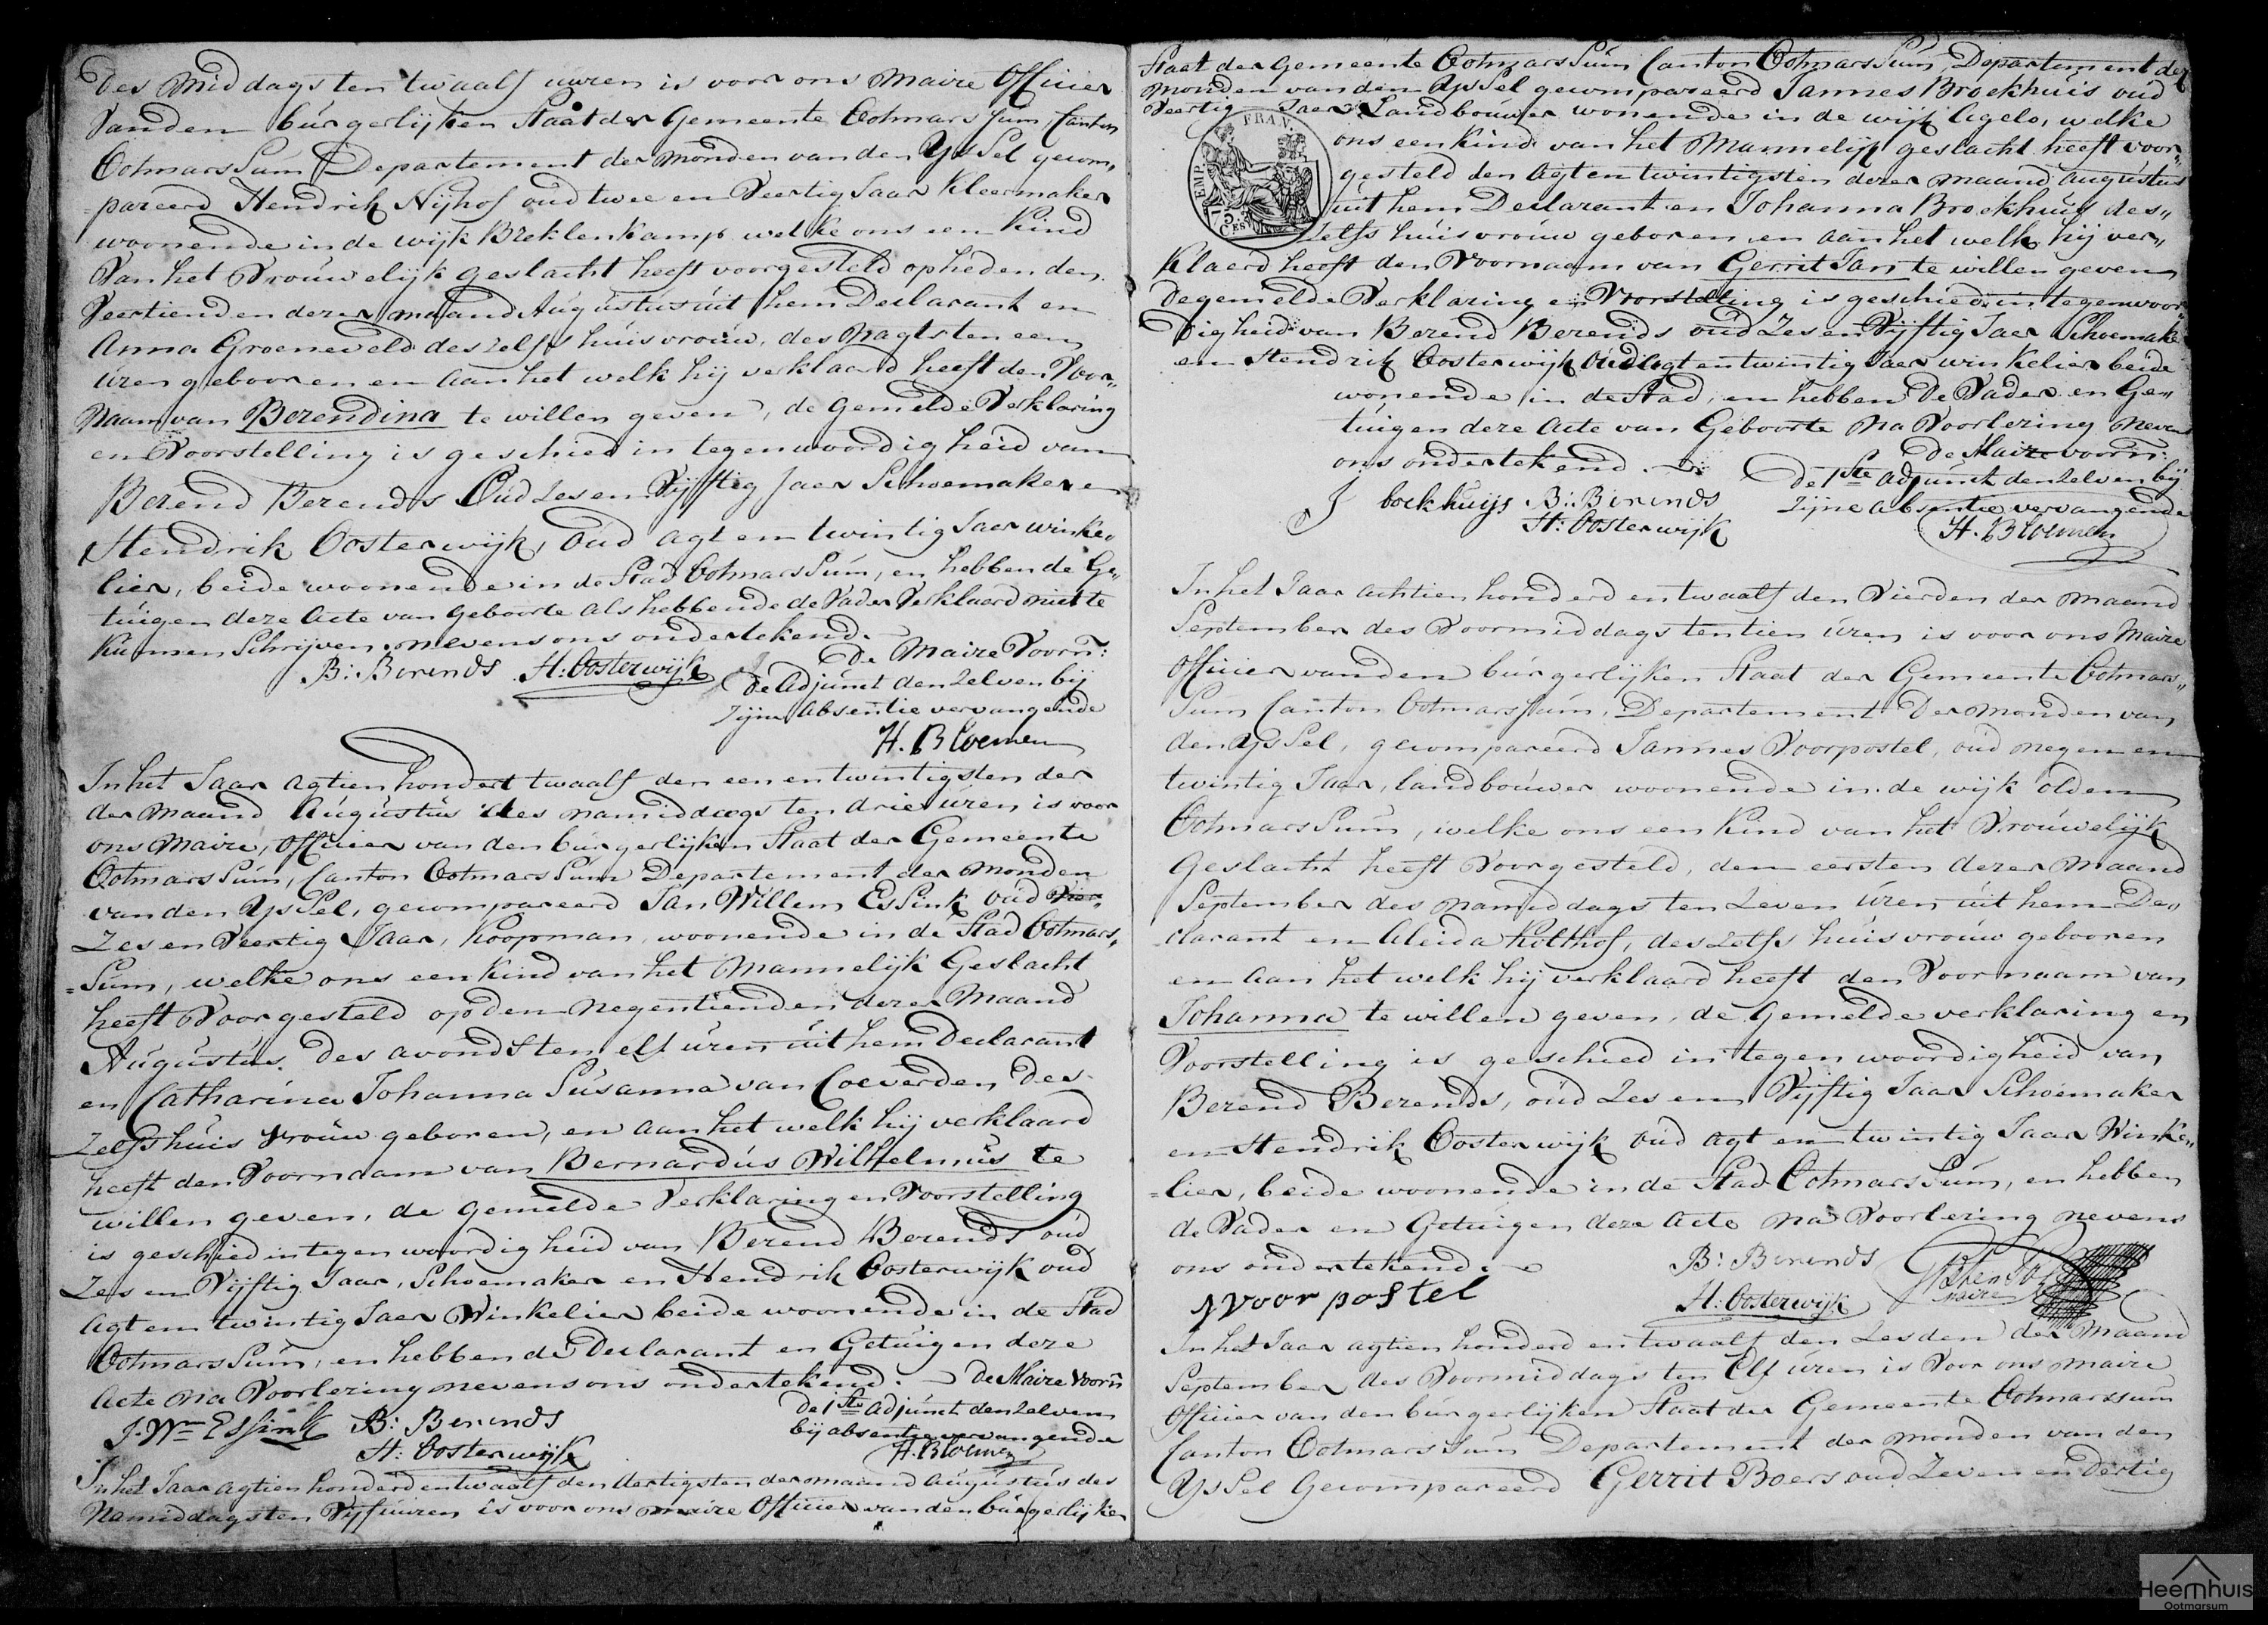 des Middags ten twaalf uuren is voor ons Maire Officier
van den burgerlijken Staat der Gemeente Ootmarssum Canton
Ootmarssum Departement der Monden van den Yssel gecom„
pareerd Hendrik Nijhof oud twee en Veertig Jaar Kleermaker
woonende in de wijk Breklenkamp welke ons een Kind
van het Vrouwelijk geslacht heeft voorgesteld op heden den
Veertienden dezer maand Augustus uit hem Declarant en
Anna Groeneveld deszelfs huisvrouw, des Nagts ten een
uren gebooren en aan het welk hij verklaard heeft den Voor„
Naam van Berendina te willen geven, de Gemelde Verklaring
en Voorstelling is geschied in tegenwoordigheid van
Berend Berends Oud Zes en Vijftig Jaar Schoemaker en
Hendrik Oosterwijk, Oud agt en twintig Jaar winke„
lier, beide woonende in de Stad Ootmarssum, en hebben de Ge„
tuigen deze Acte van Geboorte als hebbende de Vader Verklaard niet te
kunnen Schrijven nevens ons ondertekend.
De Maire Voorn:
B: Berends H: Oosterwijk
de Adjunct denzelven bij
zijne Absentie vervangende
H. Bloemen
In het Jaar agtien hondert twaalf den een en twintigsten der
der maand Augustus des namiddags ten drie uren is voor
ons Maire, Officier van den burgerlijken Staat der Gemeente
Ootmarssum, Canton Ootmarssum Departement der Monden
van den Yssel, gecompareerd Jan Willem Essink oud vier
Zes en Veertig Jaar, Koopman, woonende in de Stad Ootmars„
=Sum, welke ons een Kind van het Mannelijk Geslacht
heeft Voorgesteld op den Negentienden dezer Maand
Augustus. des avonds ten elf uren uit hem Declarant
en Catharina Johanna Susanna van Coeverden des
zelfs huis vrouw geboren, en aan het welk hij verklaard
heeft den Voornaam van Bernardus Wilhelmus te
willen geven, de gemelde Verklaring en Voorstelling
is geschied in tegenwoordigheid van Berend Berends oud
Zes en Vijftig Jaar, Schoemaker en Hendrik Oosterwijk oud
Agt en twintig Jaar Winkelier beide woonende in de Stad
Ootmarssum, en hebben de Declarant en Getuigen deze
Acte na Voorlezing nevens ons ondertekend. De Maire Voorn
J. Wm Essink B: Berends
de 1ste Adjunct denzelven
bij absentie vervangende
H: Oosterwijk
H. Bloemen
In het Jaar agtien honderd en twaalf den dertigsten der maand Augustus des
Namiddags ten Vijf uuren is voor ons maire Officier van den burgerlijken
Staat der Gemeente Ootmarssum Canton Ootmarssum, Departement der
Monden van den Yssel gecompareerd Jannes Broekhuis oud
Veertig Jaar Landbouwer wonende in de wijk Agelo, welke
EMP. FRAN.
75
CES
ons een kind van het Mannelijk geslacht heeft voor„
gesteld den agt en twintigsten dezer maand augustus
uit hem Declarant en Johanna Broekhuis des„
zelfs huisvrouw geboren, en aan het welk hij ver„
klaerd heeft den Voornaam van Gerrit Jan te willen geven
de gemelde Verklaring en Voorstelling is geschied in tegenwoor„
digheid van Berend Berends oud Zes en Vijftig Jaer Schoemaker
en Hendrik Oosterwijk Oud Agt en twintig Jaer winkelier beide
wonende in de Stad, en hebben de Vader en Ge„
tuigen deze Acte van Geboorte Na Voorlezing Nevens
ons ondertekend.
De Maire voorn:
de 1ste adjunct denzelven bij
zijne absentie vervangende
J bockhuijs B: Berends
H: Oosterwijk
H. Bloemen
In het Jaar achtien honderd en twaalf den Vierden der maand
September des Voormiddags ten tien uren is voor ons Maire
Officier van den burgerlijken Staat der Gemeente Ootmars„
Sum Canton Ootmarssum, Departement der Monden van
den Yssel, gecompareerd Jannes Voorpostel, oud negen en
twintig Jaar, landbouwer woonende in de wijk Olden
Ootmarssum, welke ons een Kind van het Vrouwelijk
Geslacht heeft Voorgesteld, den eersten dezer maand
September des namiddags ten Zeven uren uit hem De„
clarant en Aleida Kolthof, deszelfs huisvrouw gebooren
en aan het welk hij verklaard heeft den Voornaam van
Johanna te willen geven, de Gemelde verklaring en
Voorstelling is geschied in tegenwoordigheid van
Berend Berends, oud Zes en Vijftig Jaar Schoemaker
en Hendrik Oosterwijk oud Agt en twintig Jaar Winke„
=lier, beide woonende in de Stad Ootmarssum, en hebben
de Vader en Getuigen deze Acte na Voorlezing nevens
ons ondertekend.
B: Berends
Maire
J Voorpostel
H: Oosterwijk
In het Jaar agtien honderd en twaalf den Zesden der Maand
September des Voormiddags ten Elf uren is Voor ons Maire
Officier van den burgerlijken Staat der Gemeente Ootmarssum
Canton Ootmarssum Departement der Monden van den
Yssel Gecompareerd Gerrit Boers oud Zeven en Dertig
Heemhuis
Ootmarsum